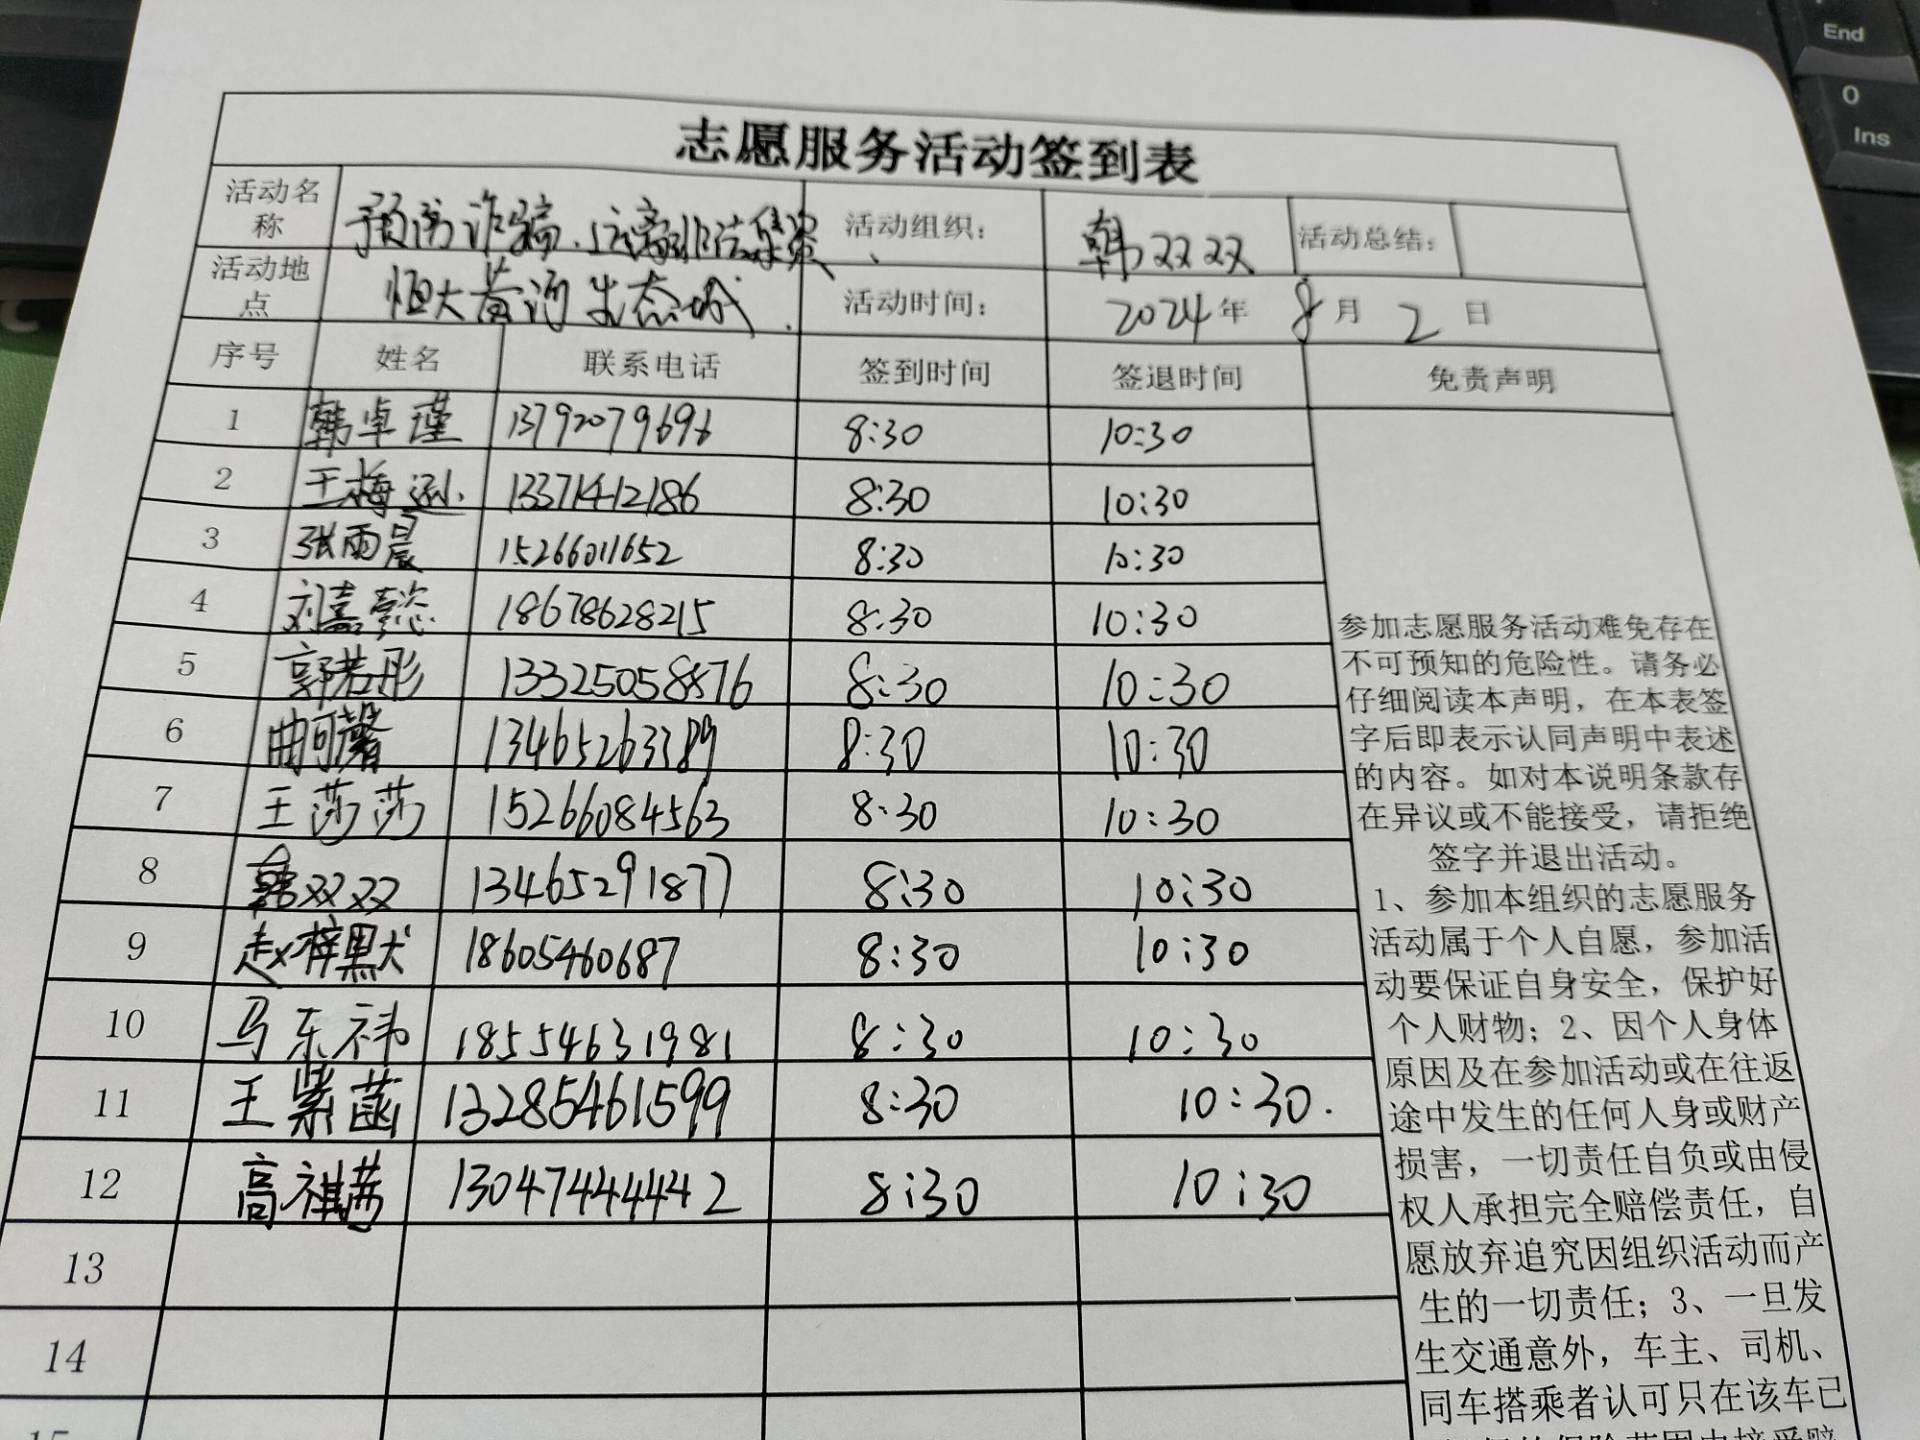 志愿服务活动签到表
活动名称 预防诈骗、远离非法集资 活动组织： 韩双双 活动总结：
活动地点 恒大黄河生态城 活动时间： 2024年 8月 2日
序号 姓名 联系电话 签到时间 签退时间 免责声明
1 韩卓瑾 13792079696 8:30 10:30
2 王梅 13371412186 8:30 10:30
3 张雨晨 15266011652 8:30 10:30
4 刘嘉懿 18678628215 8:30 10:30
5 郭若彤 13325058876 8:30 10:30
6 曲可馨 13465263389 8:30 10:30
7 王莎莎 15266084563 8:30 10:30
8 韩双双 13465291877 8:30 10:30
9 赵梓默 18605460687 8:30 10:30
10 马东祎 18554631981 8:30 10:30
11 王紫菡 13285461599 8:30 10:30.
12 高祺 13047444442 8:30 10:30
13
14
15
参加志愿服务活动难免存在
不可预知的危险性。请务必
仔细阅读本声明，在本表签
字后即表示认同声明中表述
的内容。如对本说明条款存
在异议或不能接受，请拒绝
签字并退出活动。
1、参加本组织的志愿服务
活动属于个人自愿，参加活
动要保证自身安全，保护好
个人财物；2、因个人身体
原因及在参加活动或在往返
途中发生的任何人身或财产
损害，一切责任自负或由侵
权人承担完全赔偿责任，自
愿放弃追究因组织活动而产
生的一切责任；3、一旦发
生交通意外，车主、司机、
同车搭乘者认可只在该车已
End
0
Ins